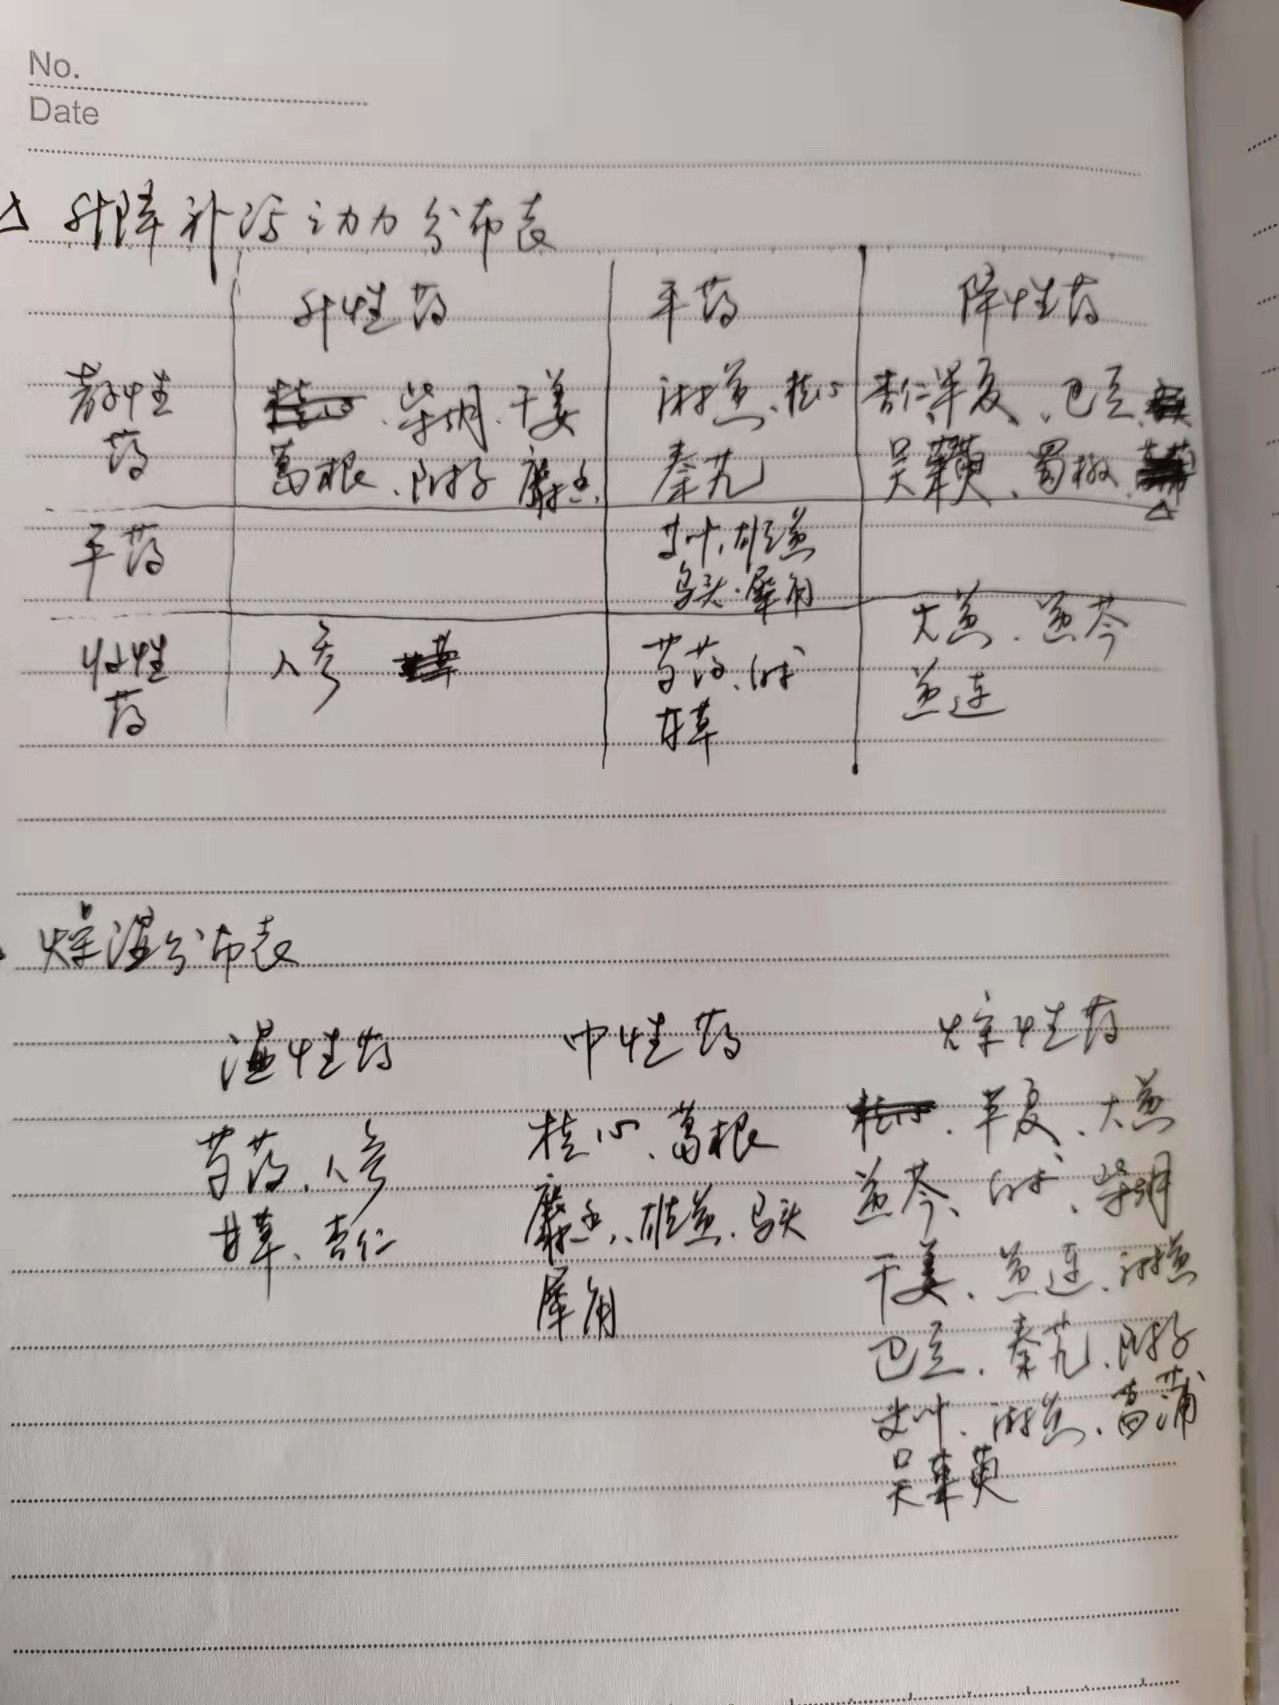 No.
Date
△ 升降补泻动力分布表
升性药 平药 降性药
散性药 柴胡、干姜 桂心 杏仁、半夏、巴豆
葛根、附子 麝香、 秦艽 吴茱萸、蜀椒
平药 艾叶、雄黄
乌头、犀角
收性药 人参 芍药、白术 大黄、黄芩
甘草 黄连
燥湿分布表
湿性药 中性药 燥性药
芍药、人参 桂心、葛根 半夏、大黄
甘草、杏仁 麝香、雄黄、乌头 黄芩、白术、柴胡
犀角 干姜、黄连
巴豆、秦艽、附子
艾叶、菖蒲
吴茱萸